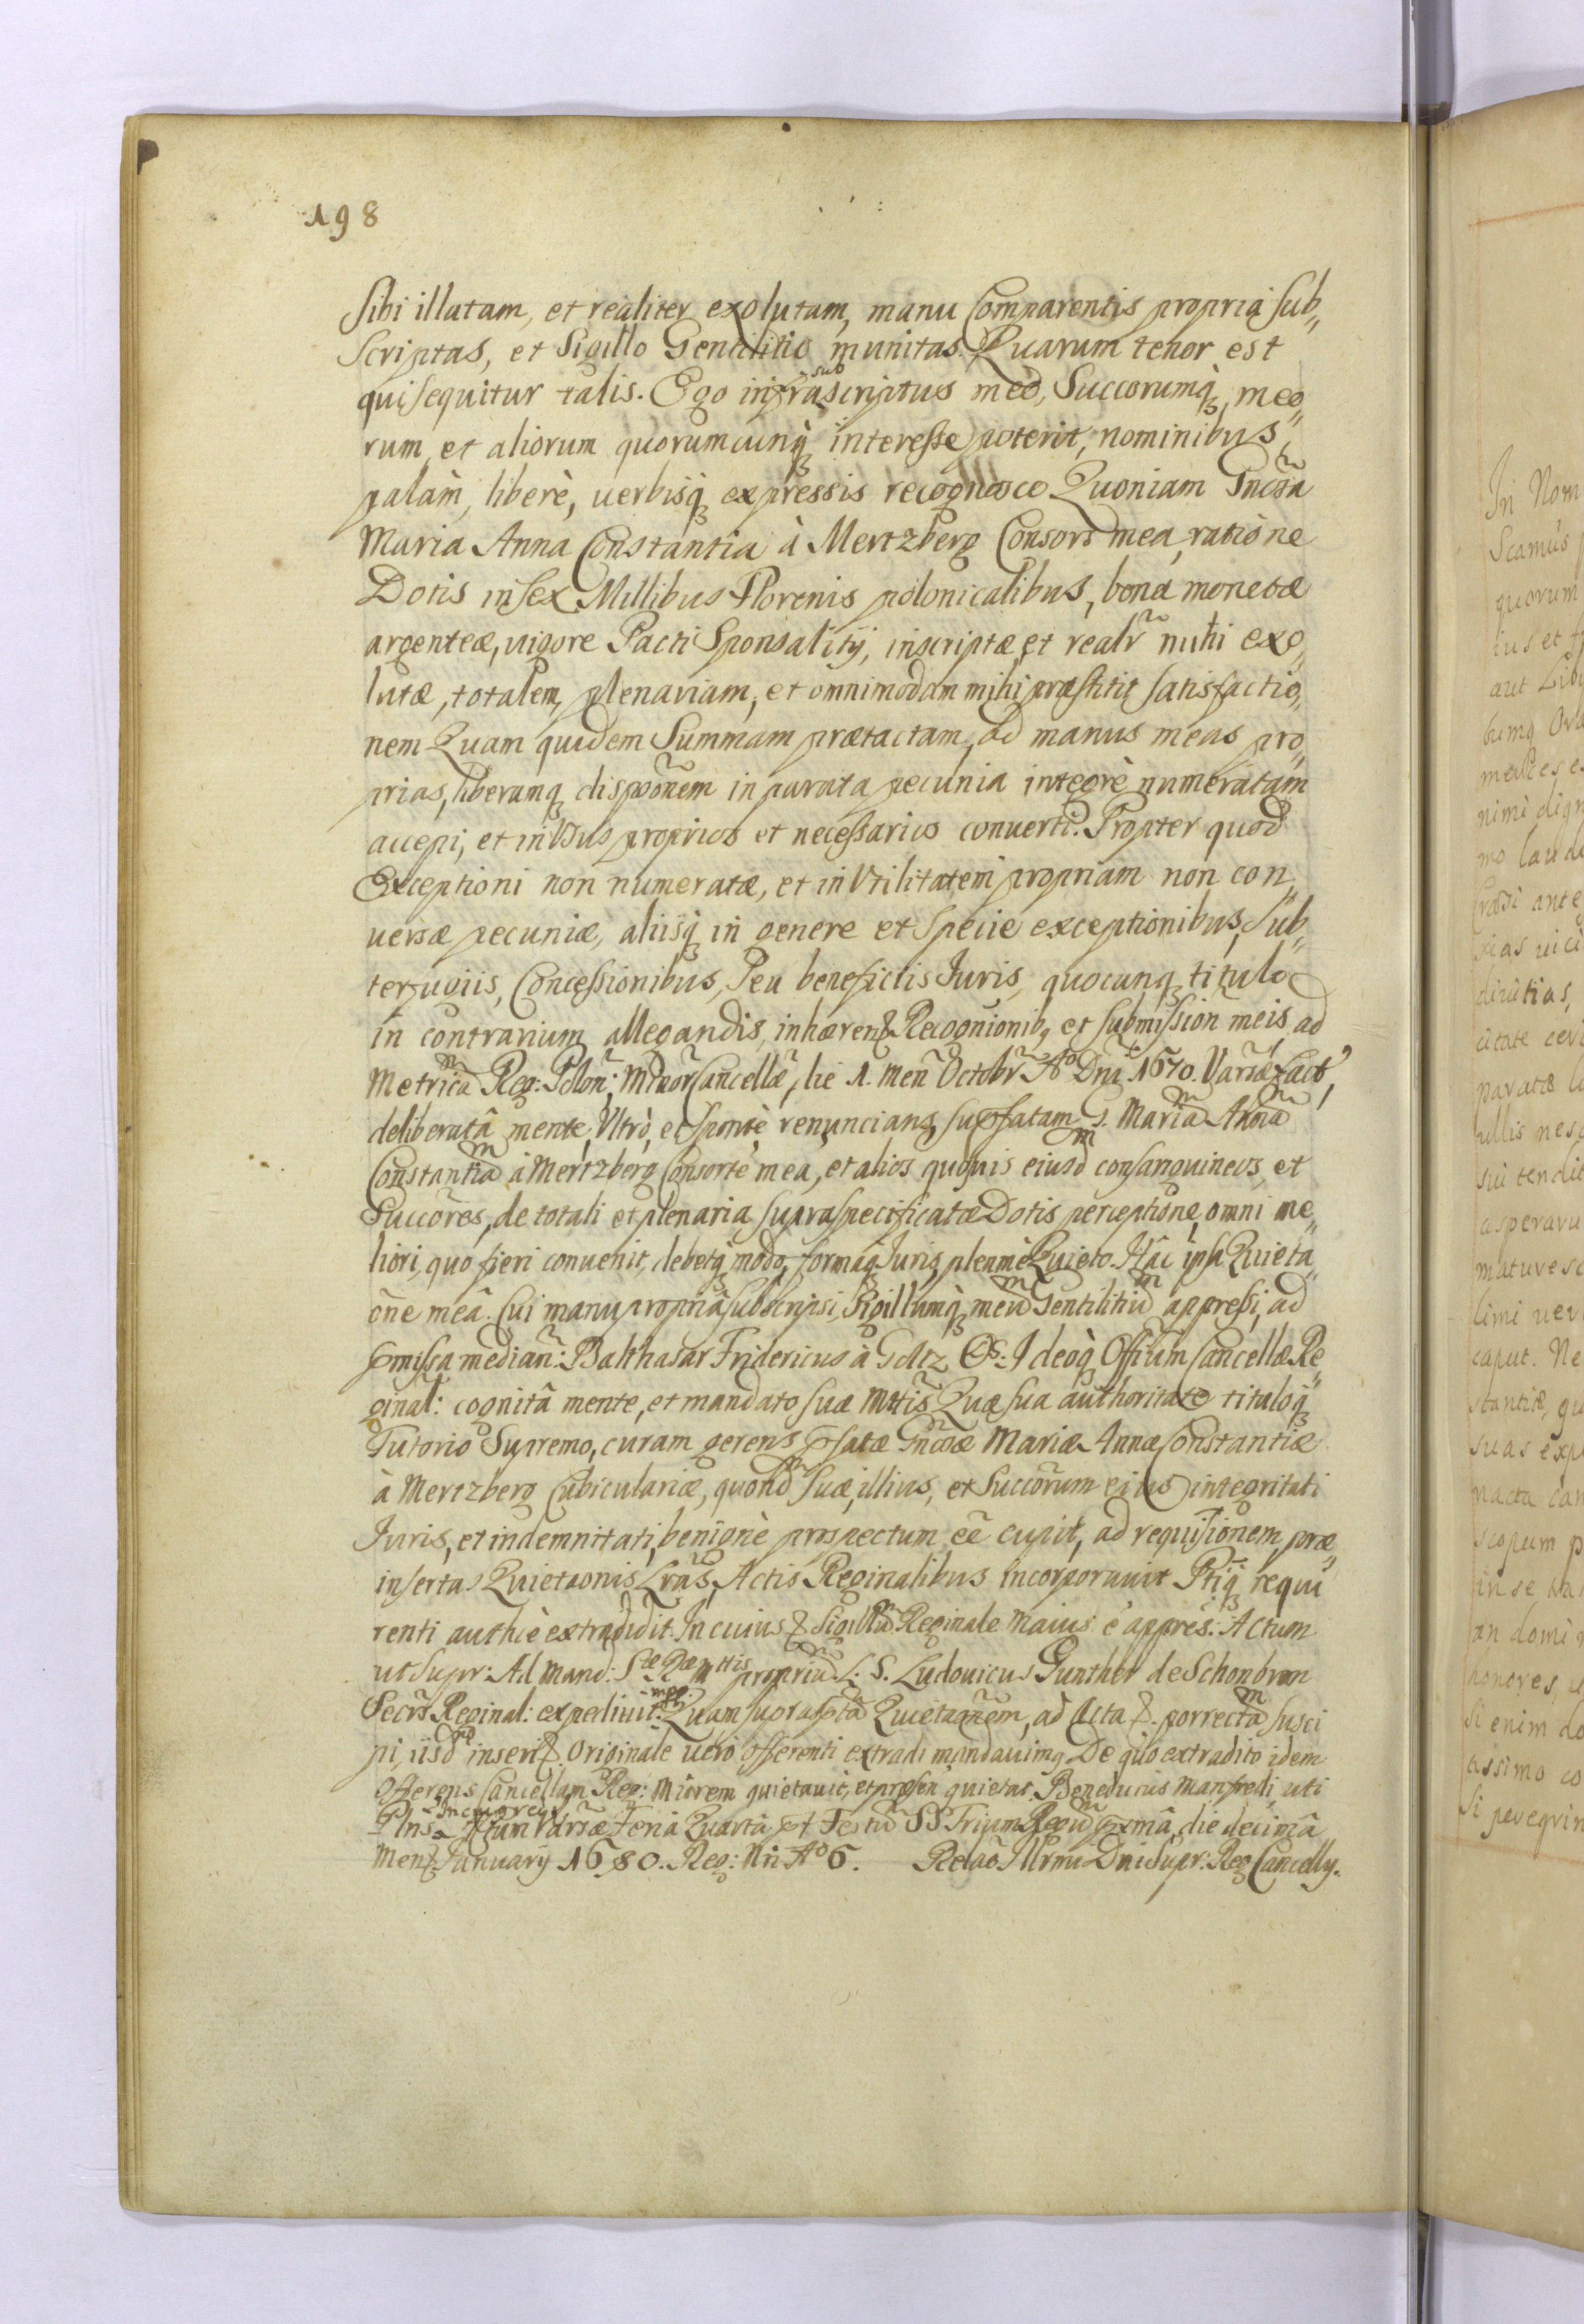 198
Sibi illatam, et realiter exolutam, manu Comparentis propria sub„
scriptas, et Sigillo Gentilitio munitas. Quarum tenor est
qui sequitur talis. Ego infrascriptus meo, Succorumq, meo„
sub
rum, et aliorum quorumcunq interesse poterit, nominibus,
palàm, liberè, uerbisq expressis recognosco Quoniam Gnosa
Maria Anna Constantia à Mertzberg Consors mea, ratione
Dotis in sex Millibus Florenis polonicalibus, bonæ monetæ
argenteæ, uigore Pacti Sponsalitij, inscriptæ, et realr mihi exo„
lutæ, totalem, plenariam, et omnimodam mihi præstitit satisfactio„
nem Quam quidem Summam prætactam, ad manus meas pro„
prias, liberamq disponem in parata pecunia integrè numeratam
accepi, et in Usus proprios et necessarios conuerti. Propter quod
Exceptioni non numeratæ, et in Utilitatem propriam non con„
uersæ pecuniæ, aliisq in genere et specie exceptionibus, Sub„
terfugiis, Concessionibus, seu beneficiis Iuris, quocunq titulo
in contrarium allegandis, inhæren Recognionib, et submission meis, ad
Metrica Reg: Polon: Minor Cancellæ, die 1. Men Octobr Ao Dni 1670. Varsæ fact,
deliberatâ mente, Ultrò, et spontè renuncians, supfatam G. Maria Anna
Constantia à Mertzberg Consorte mea, et alios quosuis eiusd consanguineos, et
Succores, de totali et plenaria supraspecificatæ Dotis perceptione, omni me„
liori, quo fieri conuenit, debetq modo, formaq Iuris, plenariè Quieto. Hâc ipsa Quieta„
one meâ. Cui manu propriâ subscripsi, Sigillumq meu Gentilitiu appressi, ad
pmissa median: Balthasar Fridericus à Goltz Ideoq Offium Cancellæ Re„
ginal: cognitâ mente, et mandato suæ Mttis Quæ sua authoritate tituloq
Tutorio Supremo, curam gerens pfatæ Gnosæ Mariæ Annæ Constantiæ
à Mertzberg Cubiculariæ, quond suæ, illius, et Succorum eius integritati
Iuris, et indemnitati, benignè prospectum ee cupit, ad requisionem, præ„
insertas Quietaonis Lras, Actis Reginalibus incorporauit Ptiq requi
renti authè extradidit. In cuius Sigillu Reginale Maius e appres: Actum
ut supr: Ad Mand: Sæ Ræ Mttis propriu. L. S. Ludouicus Gunther de Schonbron
Secrs Reginal: expediuit mpp. Quam suprasptã Quietaonem, ad Acta porrecta susci
pi, iisd inseri Originale uerò offerenti extradi mandauimq De quo extradito idem
Offerens Cancellam Reg: Miorem quietauit, et præsen quietat. Benedictus Manfredi, uti
Plns Actum Varsæ Feria Quarta pt Festu SS Trium Regu pxmâ, die decimâ
Men January 1680. Reg: Nri Ao 6. Relao Illrmi Dni Supr: Reg Cancelly.